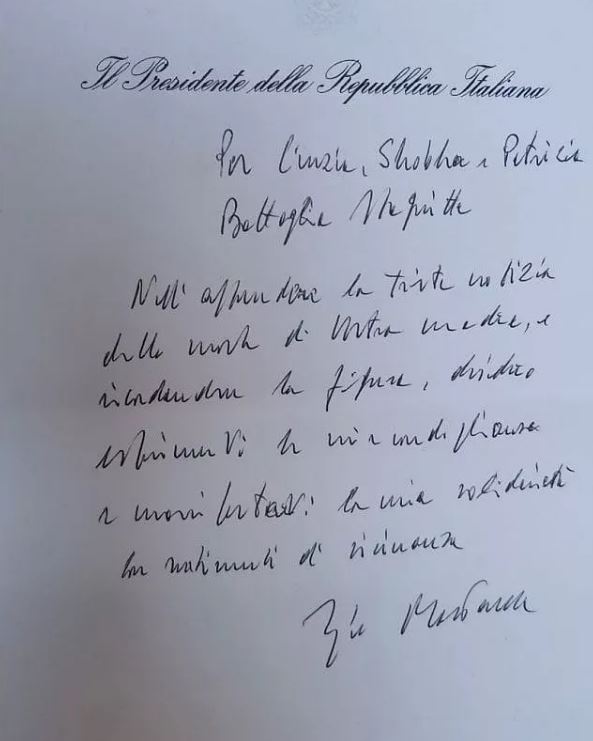 Il Presidente della Repubblica Italiana
Per Cinzia, Shobha e Patrizia
Battaglia Stagnitta
Nell' apprendere la triste notizia
della morte di Vostra madre, e
ricordandone la figura, desidero
esprimerVi le mie condoglianze
e manifestarVi la mia solidarietà
con sentimenti di vicinanza
Sergio Mattarella